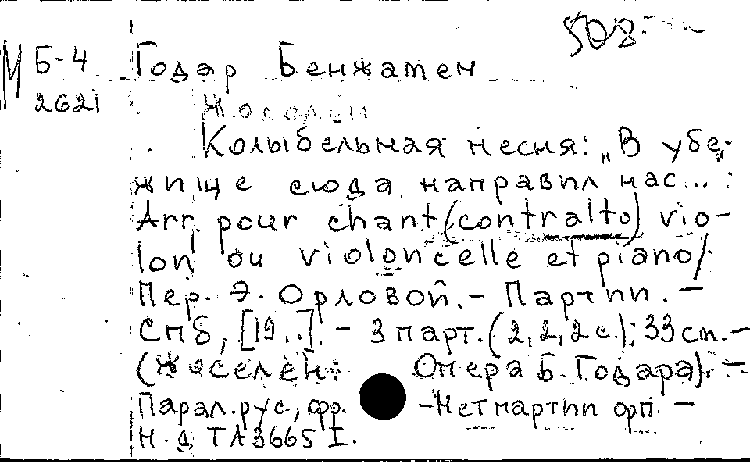 508
М Б-4 Годар Бенжамен
2621
Жоселен
Колыбельная песня: „В убе-
жище сюда направил нас... :
Arr. pour chant (contralto) vio-
lon ou violoncelle et piano/
Пер. Э. Орловой. - Партии. -
СПб, [19..]. - 3 парт. (2,2,2 с.); 33 см. -
(Жоселен: Опера Б. Годара). -
Парал. рус., фр. - Нет партии ф-п. -
Н. д. ТЛ3665 I.